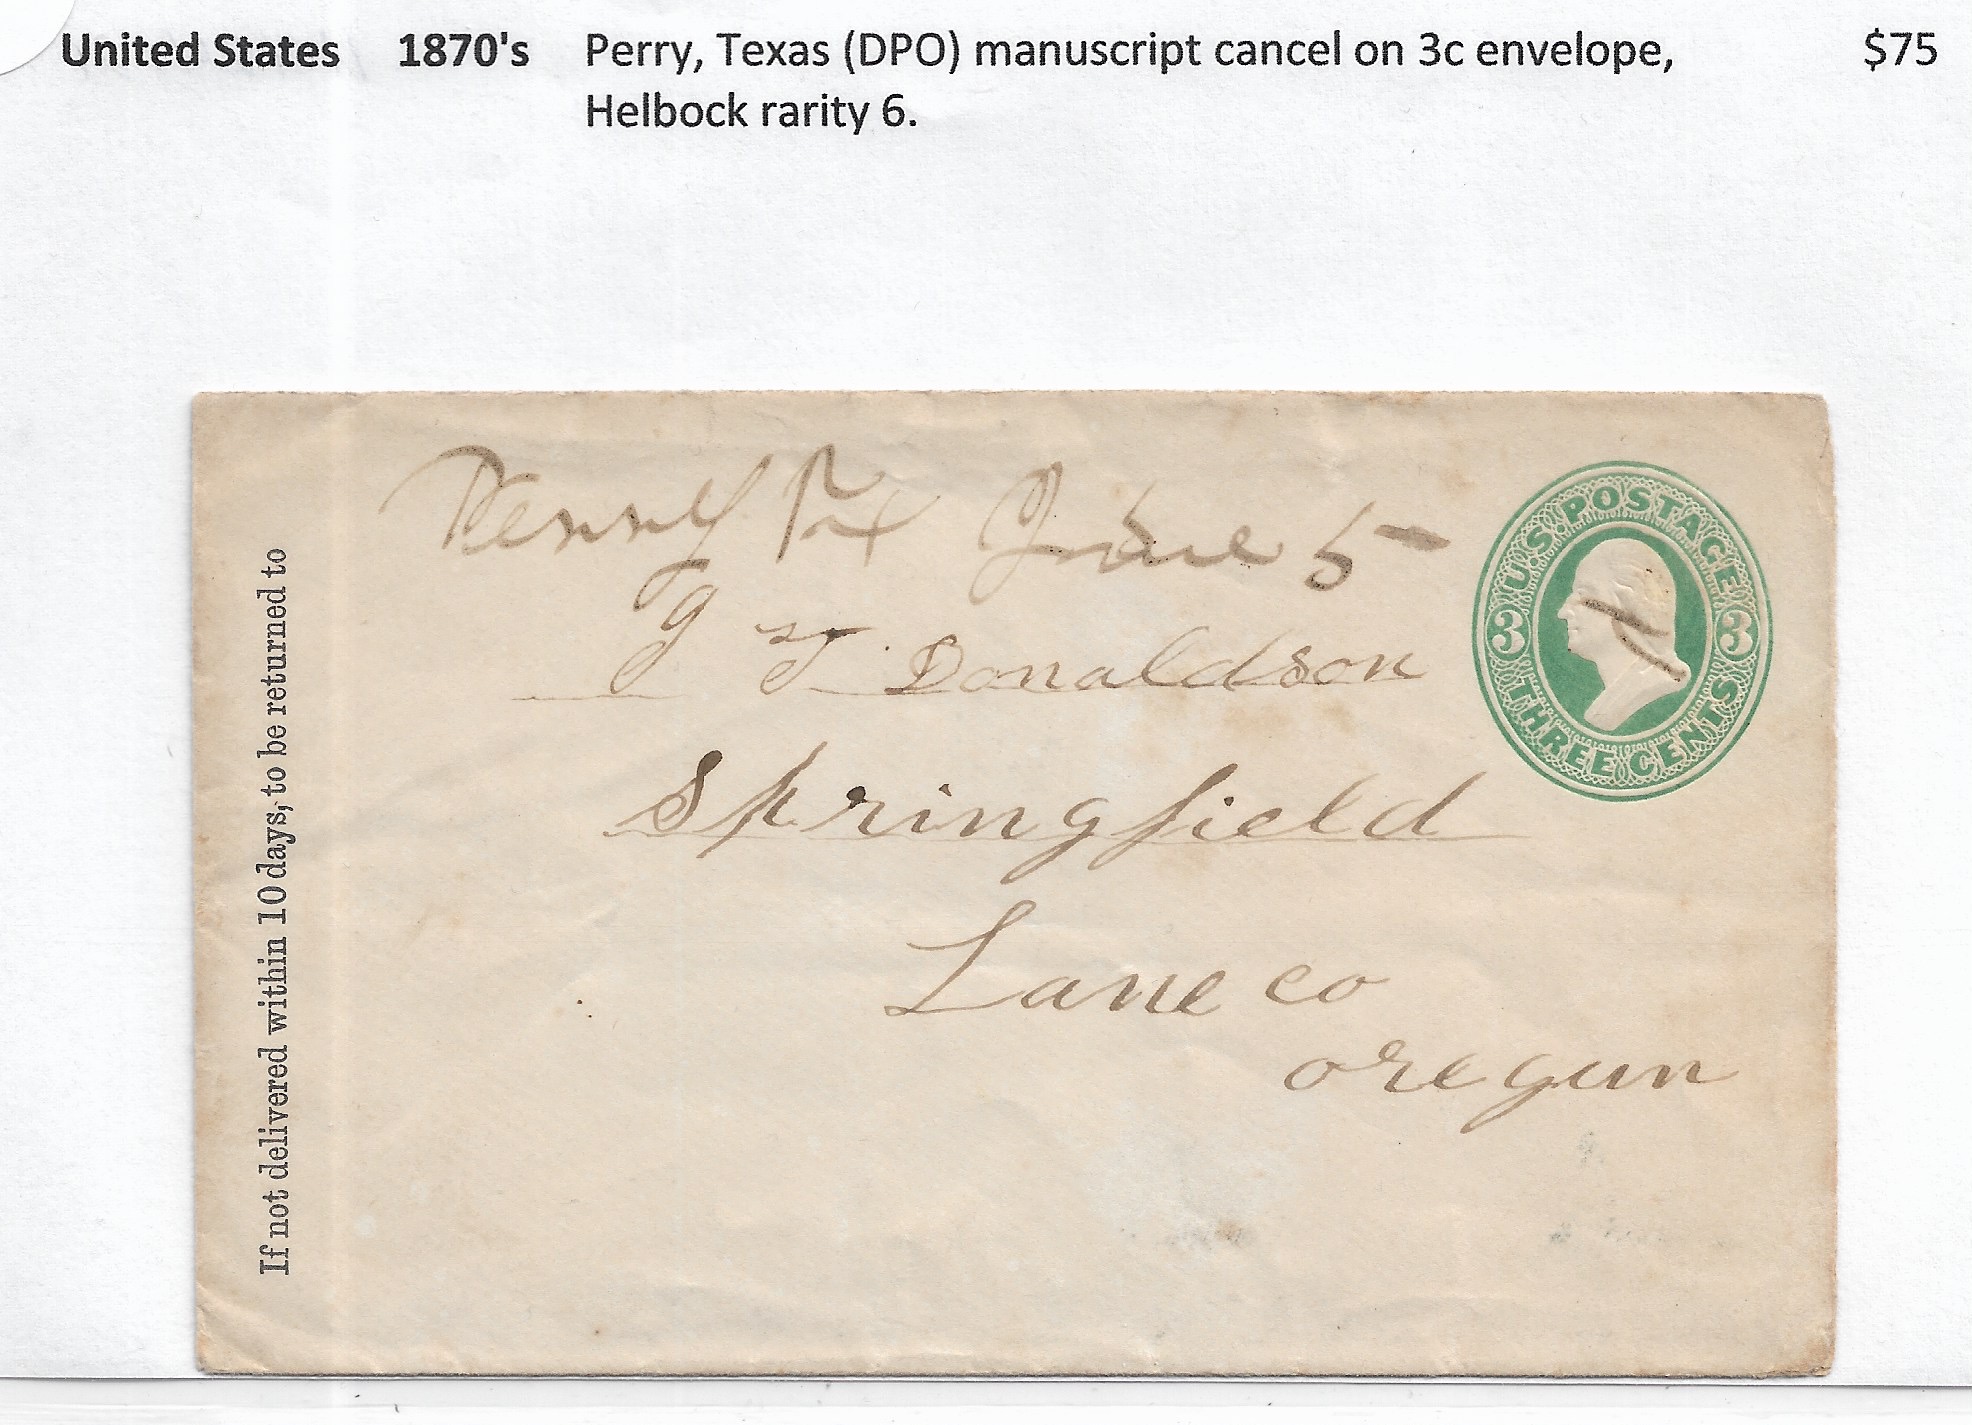 United States 1870's Perry, Texas (DPO) manuscript cancel on 3c envelope, $75
Helbock rarity 6.
Perry Tx June 5
J T Donaldson
Springfield
Lane co
oregun
U.S. POSTAGE
3 3
THREE CENTS
If not delivered within 10 days, to be returned to